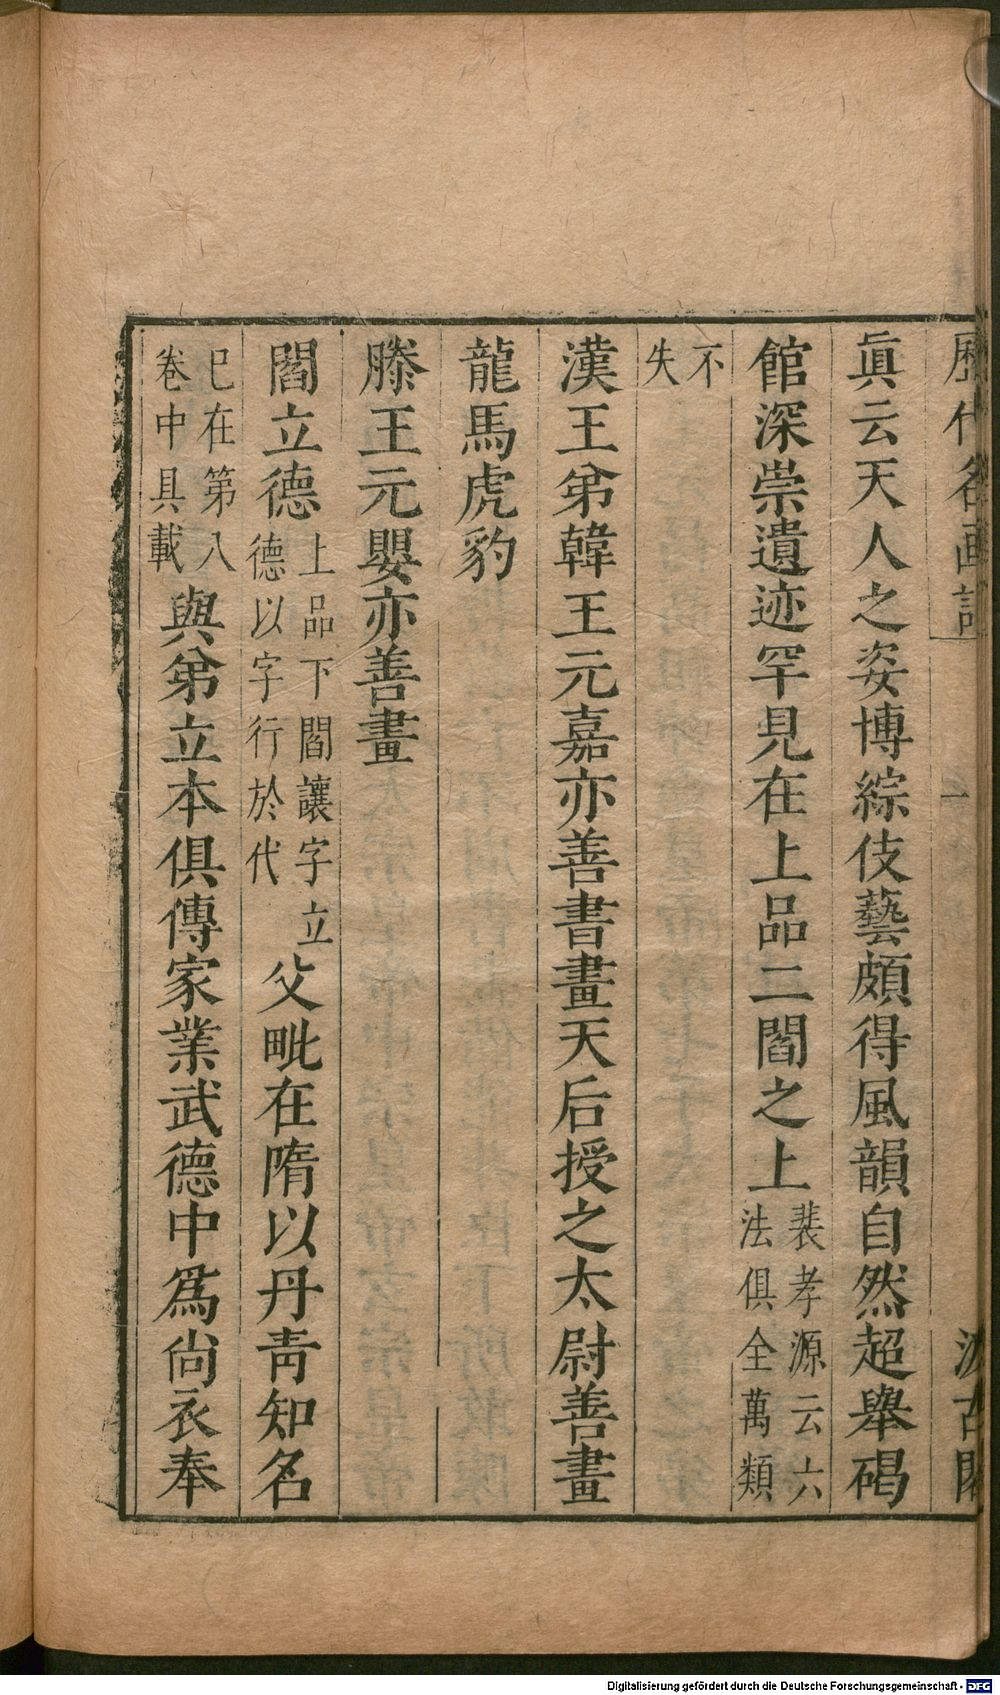 歷代名画記
汲古閣
眞云天人之姿博綜伎藝頗得風韻自然超舉碣
館深崇遺迹罕見在上品二閻之上裴孝源云六法俱全萬類
不失
漢王弟韓王元嘉亦善書畫天后授之太尉善畫
龍馬虎豹
滕王元嬰亦善畫
閻立德上品下閻讓字立德以字行於代父毗在隋以丹青知名
巳在第八卷中具載與弟立本俱傳家業武德中爲尙衣奉
Digitalisierung gefördert durch die Deutsche Forschungsgemeinschaft - DFG